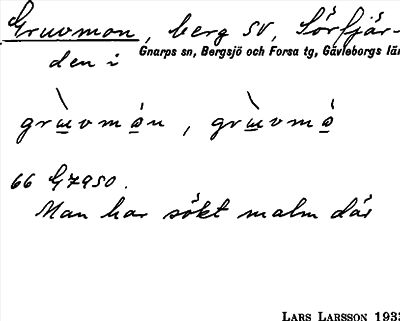 Gruvmon, berg SV, Sörfjär-
den i Gnarps sn, Bergsjö och Forsa tg, Gävleborgs län
grùvmòn, grùvmȯ
66 G7950.
Man har sökt malm där
LARS LARSSON 1933